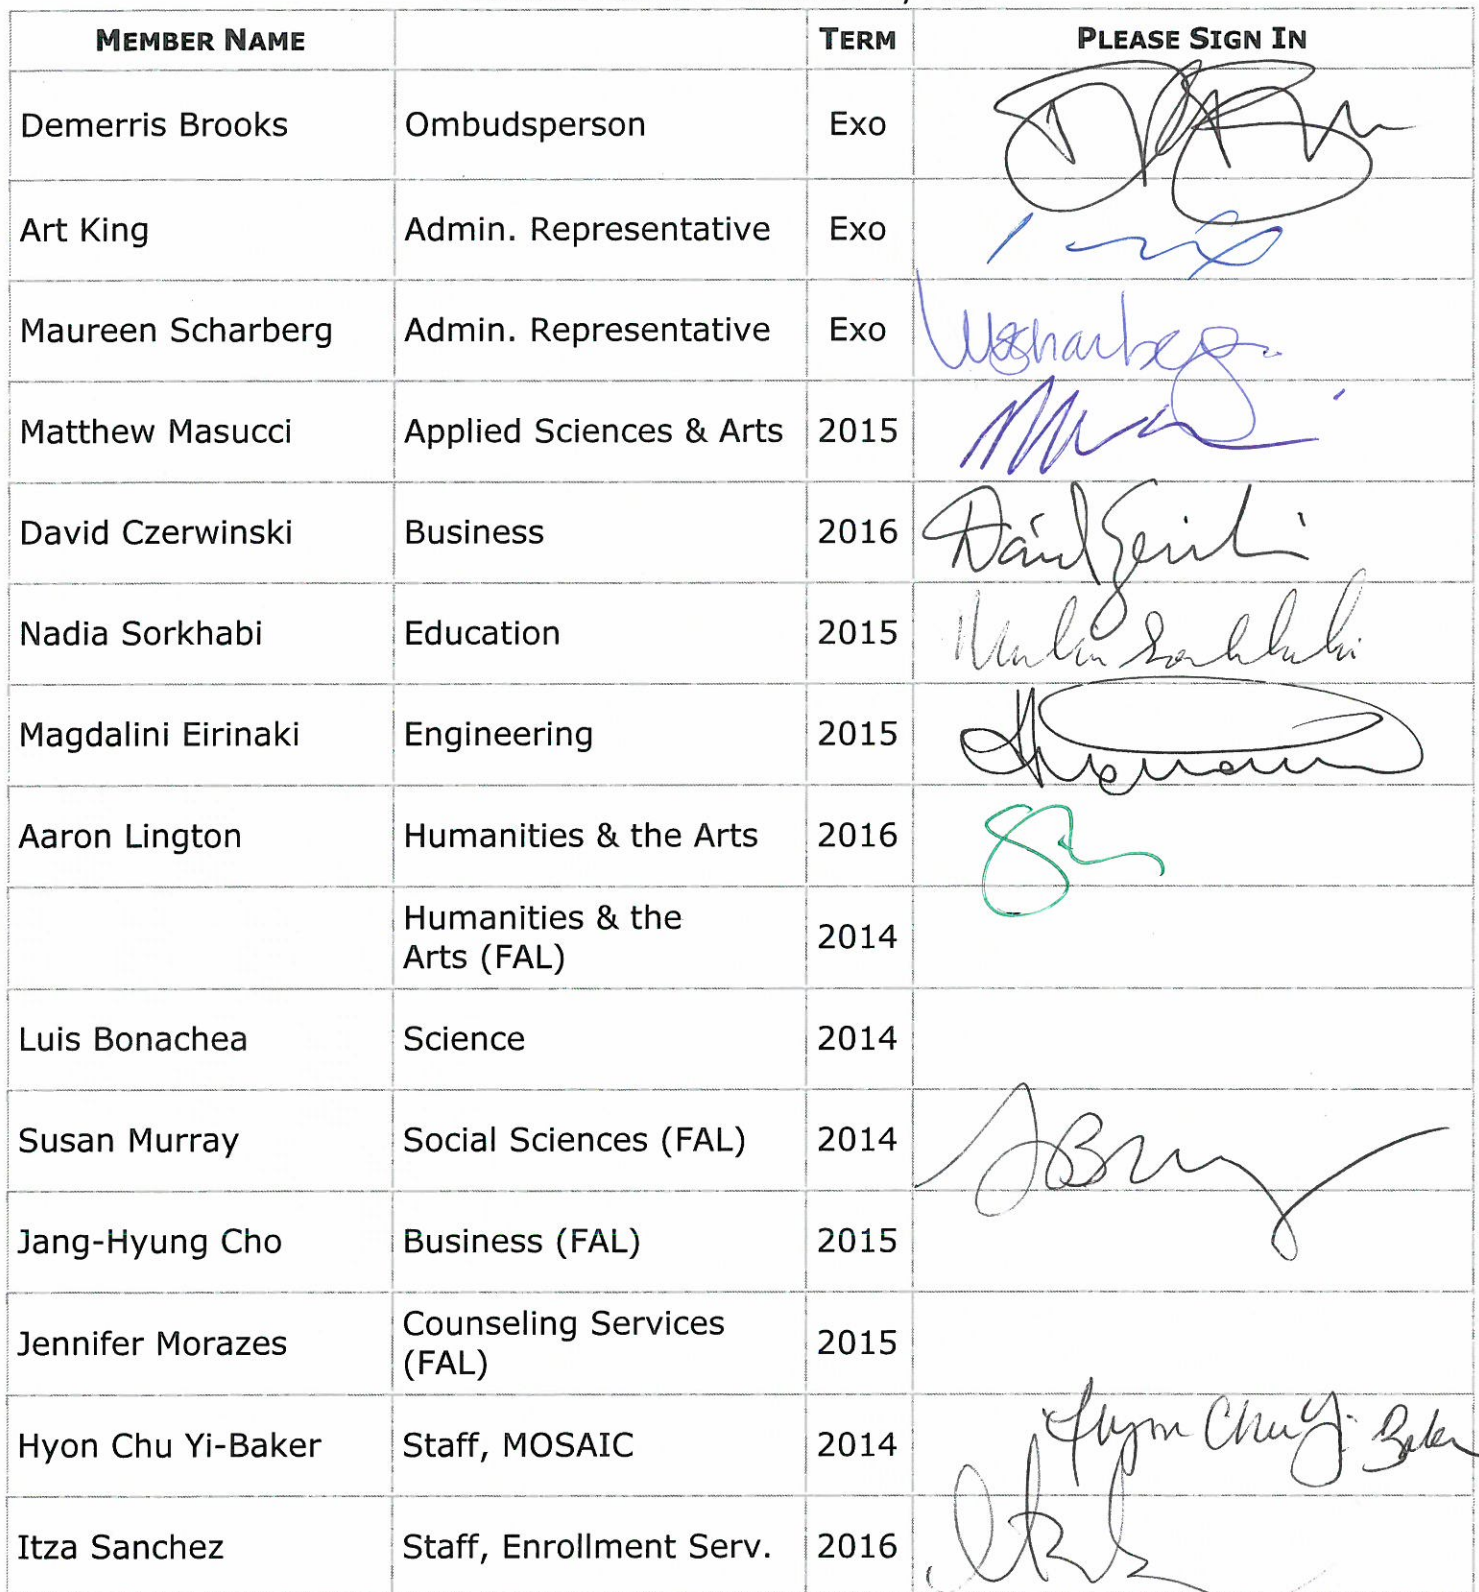 MEMBER NAME TERM PLEASE SIGN IN
Demerris Brooks Ombudsperson Exo
Art King Admin. Representative Exo
Maureen Scharberg Admin. Representative Exo
Matthew Masucci Applied Sciences & Arts 2015
David Czerwinski Business 2016
Nadia Sorkhabi Education 2015 Nadia Sorkhabi
Magdalini Eirinaki Engineering 2015
Aaron Lington Humanities & the Arts 2016
Humanities & the
Arts (FAL) 2014
Luis Bonachea Science 2014
Susan Murray Social Sciences (FAL) 2014
Jang-Hyung Cho Business (FAL) 2015
Counseling Services
Jennifer Morazes (FAL) 2015
Hyon Chu Yi-Baker Staff, MOSAIC 2014 Hyon Chu Yi-Baker
Itza Sanchez Staff, Enrollment Serv. 2016